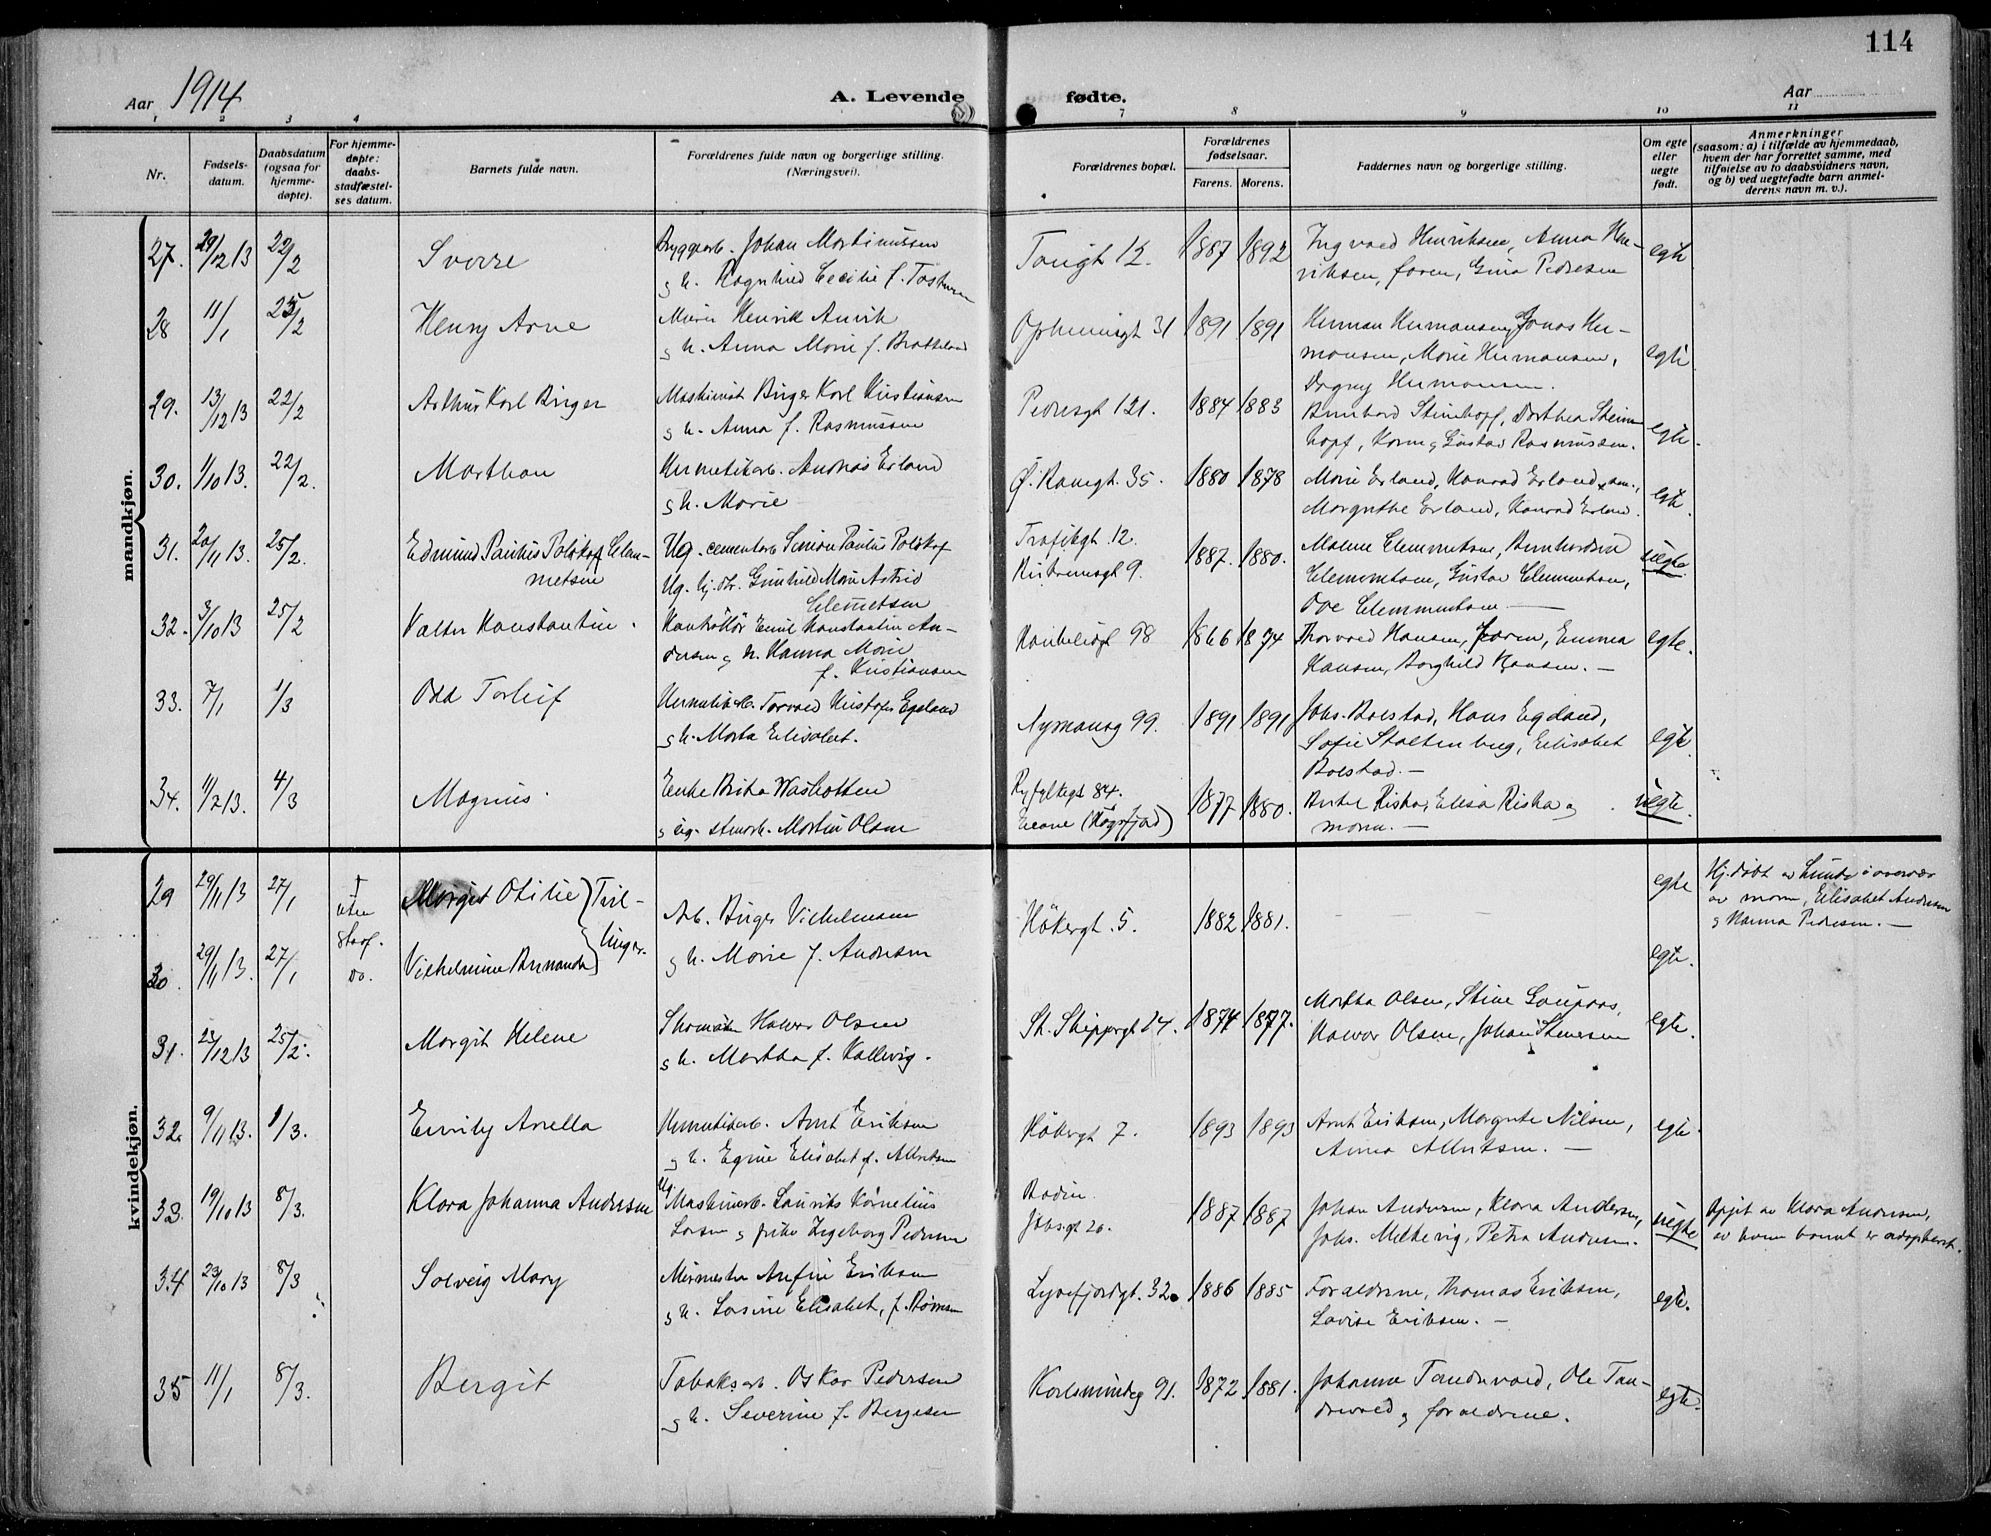 114
Aar 1914
A. Levende fødte.
Aar
1 2 3 4 7 8 9 10 11
Nr.
Fødsels-
datum.
Daabsdatum
(ogsaa for
hjemme-
døpte).
For hjemme-
døpte:
daabs-
stadfæstel-
ses datum.
Barnets fulde navn.
Forældrenes fulde navn og borgerlige stilling.
(Næringsvei).
Forældrenes bopæl.
Forældrenes
fødselsaar.
Farens. Morens.
Faddernes navn og borgerlige stilling.
Om egte
eller
uegte
født.
Anmerkninger
(saasom: a) i tilfælde av hjemmedaab,
hvem der har forrettet samme, med
tilføielse av to daabsvidners navn,
og b) ved uegtefødte barn anmel-
derens navn m. v.).
mandkjøn.
27. 29/12 13 22/2 Sverre
Bryggearb. Johan Martinussen
og h. Ragnhild Cecilie f.
12. 1887 1892
Ingvald Henriksen, Anna Hen-
riksen, faren, Gina Pedersen
egte
28 11/1 25/2 Henry Arne
Murer Henrik
og h. Anna Marie f. Bratteland
31 1891 1891
Herman Hermansen, Jonas Her-
mansen, Marie Hermansen,
Dagny Hermansen.
egte
29. 13/12 13 22/2 Arthur Karl Birger
Maskinist Birger Karl Kristiansen
og h. Anna f. Rasmussen
Pedersgt 121. 1884 1883
Bernhard Steinkopf, Dorthea Stein-
kopf, Karen og Gustav Rasmussen.
egte.
30. 1/10 13. 22/2. Marthon
Hermetikarb. Andreas Erland
og h. Marie
35. 1880 1878
Marie Erland, Konrad Erland
Margrethe Erland, Konrad Erland.
egte.
31. 20/11 13. 25/2. Edmund Paulus Clem-
metsen
Ug. cementarb. Simon Paulus
Ug. Gunhild Marie Astrid
Clemetsen
Trafikgt. 12.
9. 1887. 1880.
Malene Clemmetsen,
Clemmetsen, Gustav Clemmetsen,
Ove Clemmentsen —
uegte.
32. 3/10 13 25/2 Valter Konstantin.
Kontrollør Emil Konstantin An-
dersen og h. Hanna Marie
f. Kristiansen
98 1866 1874
Thorvald Hansen, faren, Emma
Hansen, Borghild Hansen. —
egte.
33. 7/1 1/3 Odd Torleif
Hermetikarb. Torvald Kristofer Egeland
og h. Marta Elisabet.
Nymansvg 99. 1891 1891
Johs. Bolstad, Hans Egeland,
Sofie Stoltenberg, Elisabet
Bolstad. —
egte
34. 11/2 13. 4/3 Magnus.
Enke Brita
og ug. stenarb. Martin Olsen
Ryfylkegt 84.
(Høgsfjord) 1877 1880.
Risha, Elisa Risha og
moren. —
uegte.
kvindekjøn.
29 29/11 13 27/1 †
uten
staf.
Margit Otilie } Tvil-
30. 29/11 13. 27/1 do. Vilhelmine } linger.
Arb. Birger Vilhelmsen
og h. Marie f. Andersen
Høkergt. 5. 1882 1881.
egte
egte.
Hj. døbt av Lunde i overvær
av moren, Elisabet Andersen
og Hanna Pedersen. —
31. 23/12 13 25/2. Margit Helene
Halvor Olsen
og h. Martha f. Kallevig.
St. Skippergt 24. 1874 1877.
Martha Olsen, Stine
Halvor Olsen, Johan
egte.
32. 9/11 13. 1/3. Emily Anella
Hermetikarb. Arnt Eriksen
og h. Egine Elisabet f. Albretsen
Høkergt 7. 1893 1893
Arnt Eriksen, Margrete Nilsen,
Anna Albretsen. —
egte.
33. 19/10 13 8/3. Klara Johanna Andersen
Ug. Maskinarb. Laurits Kornelius
Larsen og frøken Ingeborg Pedersen
Bodin.
20. 1887 1887
Johan Andersen, Klara Andersen,
Johs. Petra Andersen.
uegte
Opgit av Klara Andersen,
av hvem barnet er adopteret.
34 23/10 13 8/3 Solveig Mary
Eriksen
og h. Lovise Elisabet, f.
Lysefjordgt. 32. 1886 1885
Forældrene, Thomas Eriksen,
Lovise Eriksen. —
egte.
35 11/1 8/3. Bergit
Tobaksarb. Oskar Pedersen
og h. Severine f. Bergesen
Karlsmindeg 91. 1872 1881.
Johanna Tandervold, Ole Tan-
dervold og forældrene.
egte.